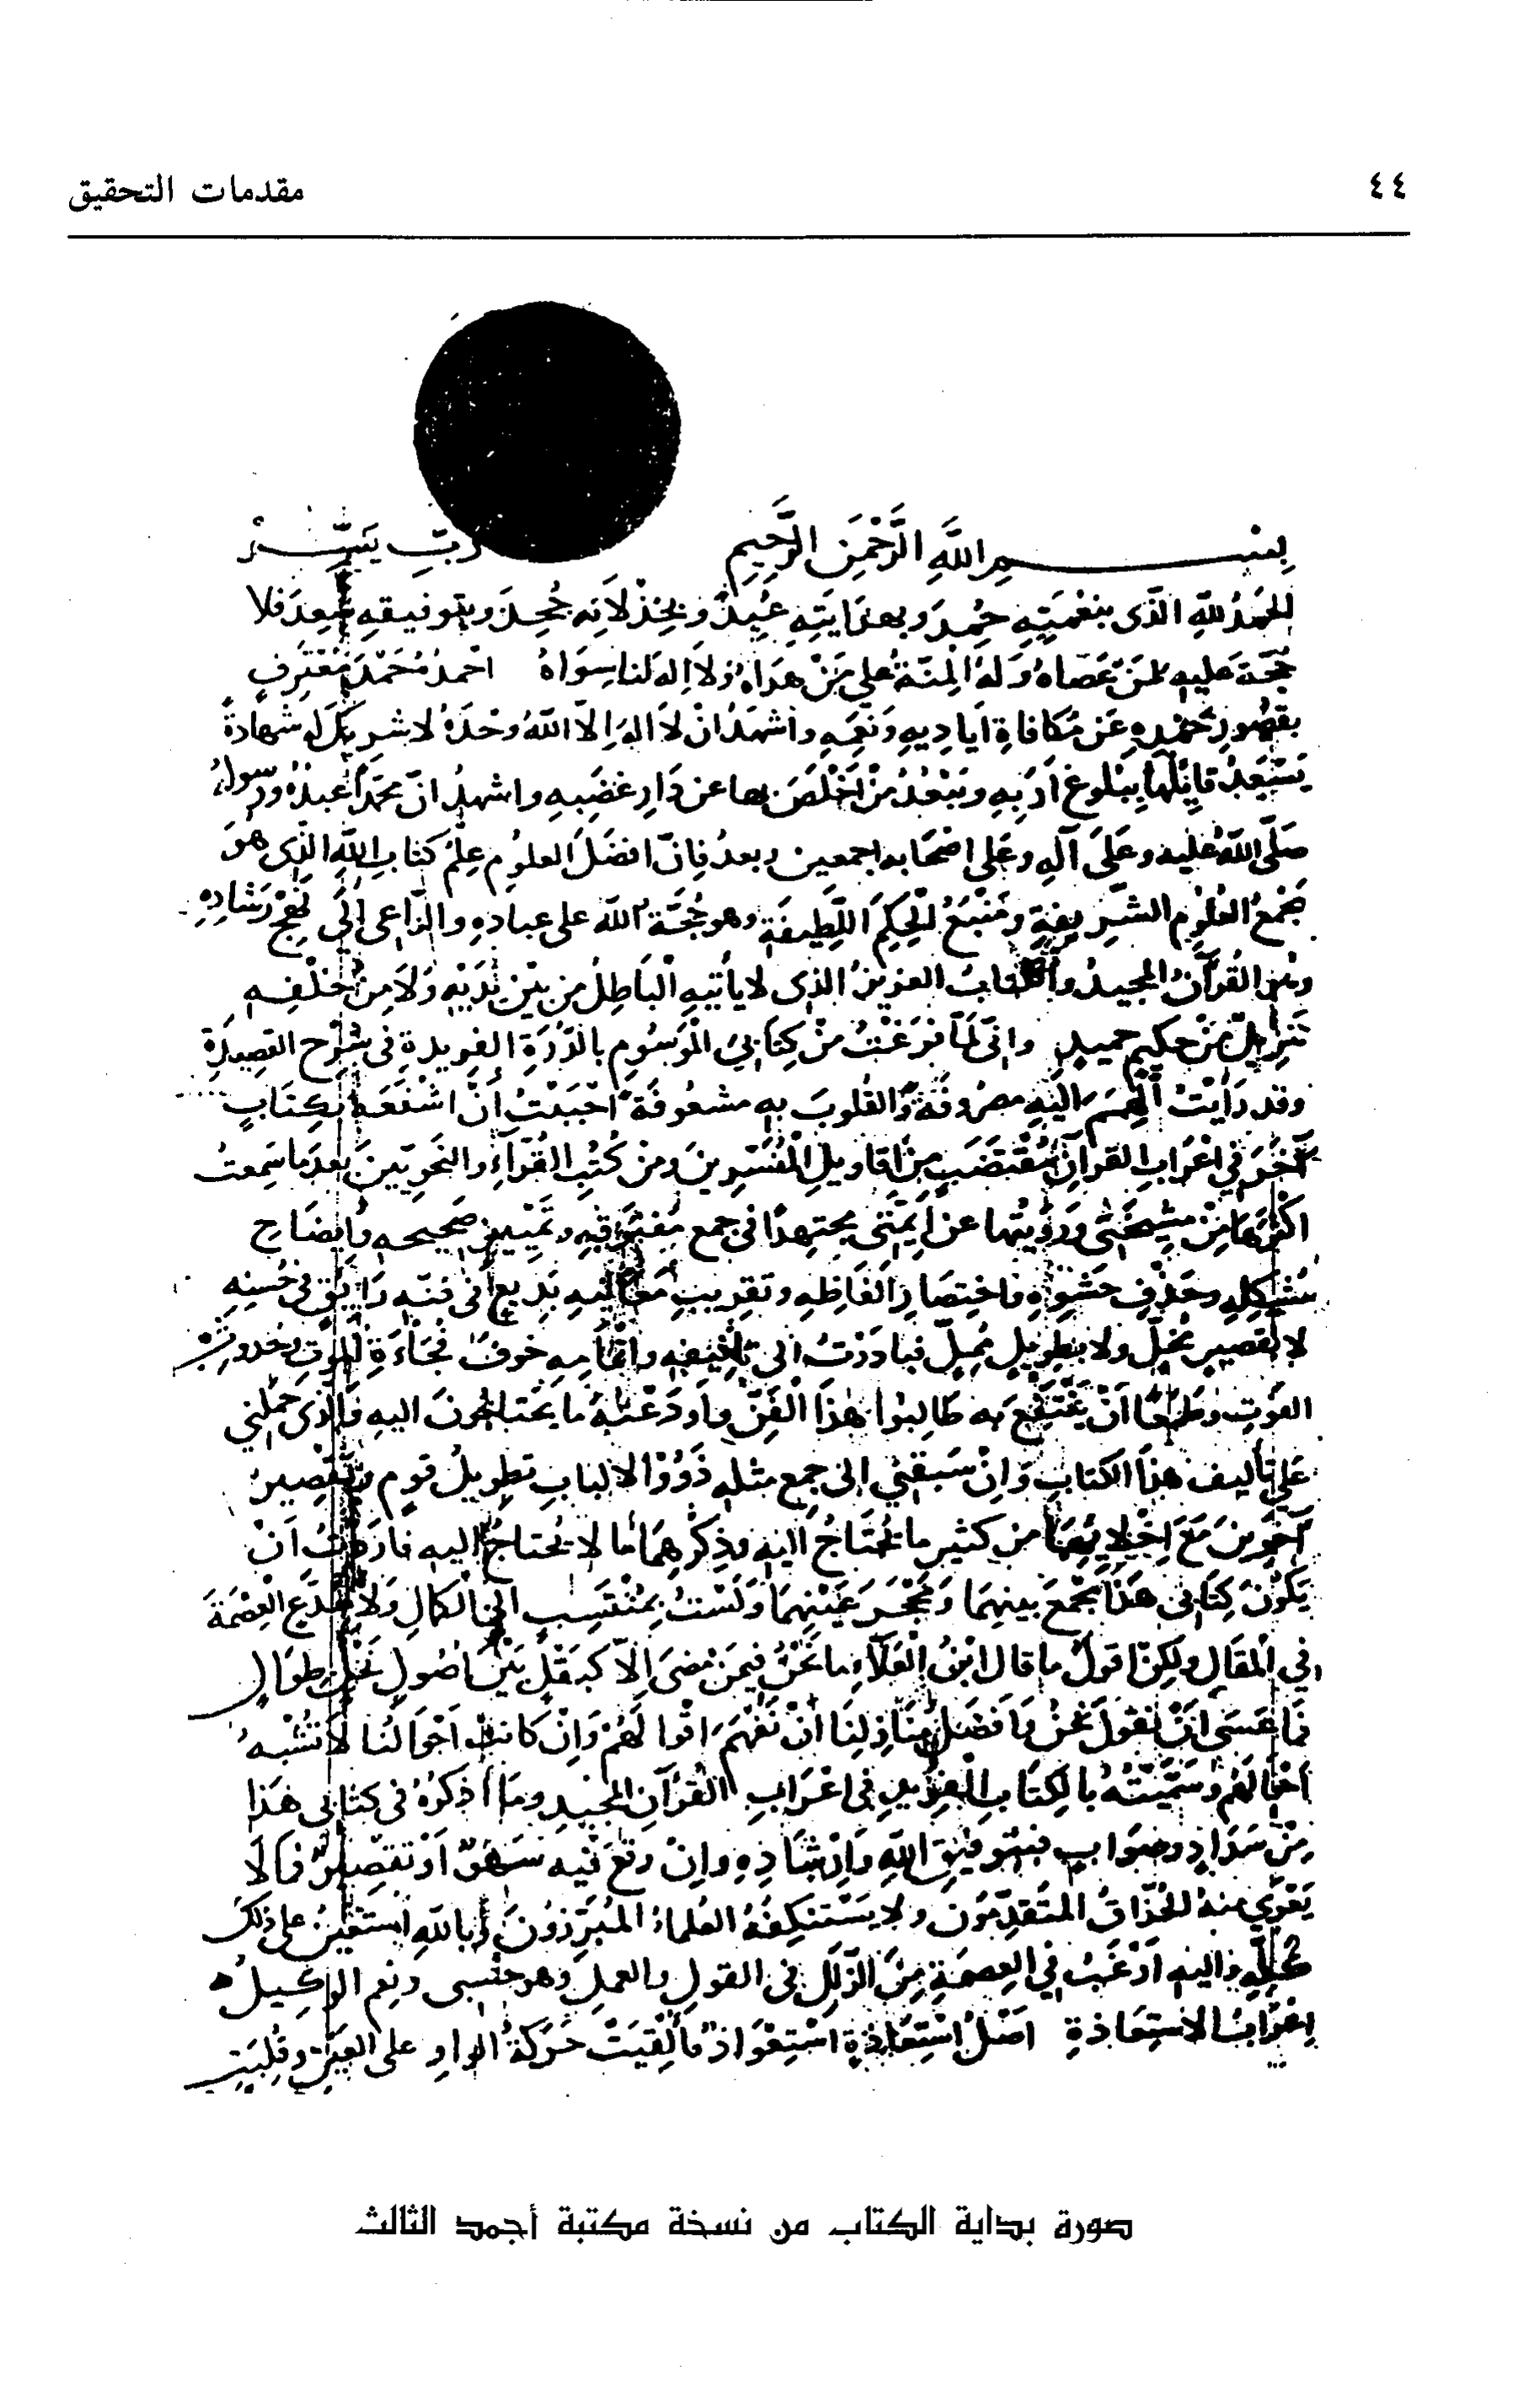 ٤٤ مقدمات التحقيق
بِسْمِ اللَّهِ الرَّحْمَنِ الرَّحِيمِ رَبِّ يَسِّرْ
الحَمْدُ للهِ الذَّى بنِعْمَتِهِ حُمِدَ وبهدَايَتِهِ عُبِدَ وبخِذْلَانِه جُحِدَ وبتوفيقِهِ سُعِدَ فلا
حُجَّةَ عليه لمَنْ عَصَاهُ وَلَهُ المِنَّةُ على مَنْ هَدَاهُ وَلاَ إِلهَ لنا سِوَاهُ احمدُهُ حَمْدَ مُعْتَرِفٍ
بقصُورِ حَمْدِهِ عَن مُكافاةِ أيادِيهِ وَنِعَمِهِ وأشهَدُ انْ لاَ الهَ إلاّ اللهُ وَحْدَهُ لا شريكَ له شهادةً
يَسْعَدُ قايِلُهَا ببُلوغِ أَرَبِهِ ويَبْعُدُ مَنْ أخْلَصَ بها عن دَارِ غضَبِهِ واشهدُ انّ محمّداً عبدُهُ ورسولُهُ
صَلَّى اللهُ عليه وعَلَى آلِهِ وعَلى اصْحَابه اجمعين وبعدُ فإنّ افضَلَ العلومِ عِلْمُ كتابِ اللهِ الذِى هُوَ
مَجْمعُ العُلُومِ الشَّرِيفةِ ومَنْبَعُ الحِكَمِ اللَّطِيفَةِ وهو حُجَّةُ اللهِ على عبادهِ والدَّاعى إلَى نَهْجِ رَشَادِهِ
وهو القُرآنُ المجيدُ والكتابُ العزيزُ الذى لا يأتيهِ الْبَاطِلُ من بَيْنِ يَدَيْهِ وَلاَ مِنْ خَلْفِهِ
تَنْزِيلٌ مِنْ حكيمٍ حميدٍ وانّى لمّا فرَغْتُ مِنْ كِتَابِىَ المَوْسُومِ بالدُّرَةِ الفريدةِ فى شَرْحِ القصيدَةِ
وقد رَأيْتُ الهِمَمَ اليْهِ مصرُوفَةً وَالقُلوبَ بهِ مشعُوفَةً احْبَبْتُ أنْ اشْفَعَهُ بكِتَابٍ
آخَرَ فِي اعْرَابِ القرآنِ مُقْتَضَبٍ مِنْ أقاويلِ المُفَسِّرِينَ ومن كُتُبِ القُرّآءِ والنّحْويّينَ بعدَ ما سَمِعتُ
اكثرَهَا مِنْ مَشيخَتى وَرَوَيْتُها عن أيِمَّتى مجتهدًا فى جمع مُفْتَرِقِهِ وتَمْيِيزِ صَحِيحِهِ وَايضَاحِ
مُشْكِلِهِ وحَذْفِ حَشْوِهِ واختِصَارِ الْفَاظِهِ وتقريبِ مَعَانيهِ بَديعٍ فى فنّه رَايِقٍ فى حُسْنِهِ
لا بتقصيرٍ مُخِلٍّ ولا بطويلٍ مُمِلٍّ فبادَرْتُ الى تأليفِهِ واتْمَامِهِ خوفَ فُجَاءَةِ المَوْتِ وحدوثِ
الفَوْتِ وطَمَعًا أنْ يَنْتَفِعَ به طَالِبُوا هٰذَا الْفَنِّ وأودَعْتُهُ مَا يَحْتاجُونَ اليه وَالَّذى حَمَلَنى
عَلى تأليف هذا الكتابِ وَانْ سَبَقنِي الى جمعِ مثلهِ ذَوُوا الالبابِ تطويلُ قومٍ وتَقْصِيرُ
آخَرِينَ مَعَ اِخْلالِهِمَا من كثيرٍ ما يُحْتَاجُ اليْهِ وَذِكْرِهِمَا ما لا يُحتاجُ اليه فأردْتُ اَنْ
يَكُوْنَ كِتَابى هَذَا يَجْمَعُ بينِهمَا وَيُخْبِرُ عَنْهُمَا وَلَسْتُ بمُنْتَسِبٍ الى الكمالِ وَلاَ مُدَّعٍ العِصْمَةَ
فى المَقَالِ ولكِنْ اقولُ ما قال ابْنُ الْعَلاَءِ ما نَحْنُ فيمَن مَضَى إلاّ كبَقْلٍ بَيْنَ اُصُولِ نَخْلٍ طِوَالٍ
فَمَا عَسَى انْ نقُولَ نحْنُ وأفضَلُ مَنَازِلِنَا أنْ نَفْهَمَ اقْوالَهُمْ وَإِنْ كانت اَحْوالُنا لا تُشْبِهُ
احْوالَهُمْ وسَمَّيْتُهُ بالكِتَابِ الفريدِ فى اعْرَابِ القُرآنِ المجيدِ ومَا أذكرُهُ فى كتابى هَذَا
مِنْ سَدَادٍ وصَوَابٍ فبتَوفيقِ اللهِ وَإِرْشَادِهِ وإنْ وقعَ فيه سَهْوٌ أوْ تقصِيرٌ فما لا
يَعْرَى منهُ الحُذّاقُ المتَقَدِّمُونَ ولا يَسْتَنكِفُهُ العُلماءُ المُبَرِّزُونَ وبالله أستَعينُ على ذلك
كُلِّهِ واليه أَرْغَبُ فى العِصمَةِ مِنَ الزَّلَلِ فى القولِ والعملِ وهو حَسْبى ونِعم الوكيلُ
اِعْرَابُ الاسْتِعَاذةِ اَصْلُ اسْتِعَاذَةٍ اسْتِعْوَاذٌ فأُلْقِيَتْ حَرَكَةُ الواوِ على العَيْنِ وقُلِبَتْ
صورة بداية الكتاب من نسخة مكتبة أحمد الثالث